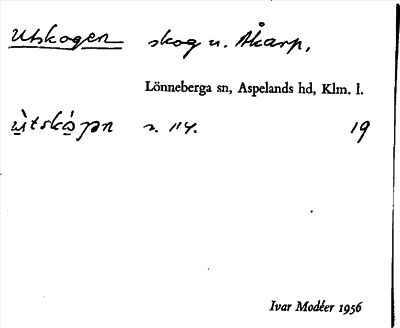 Utskogen skog u. Åkarp,
Lönneberga sn, Aspelands hd, Klm. l.
ùtskògn n. 114. 19
Ivar Modéer 1956